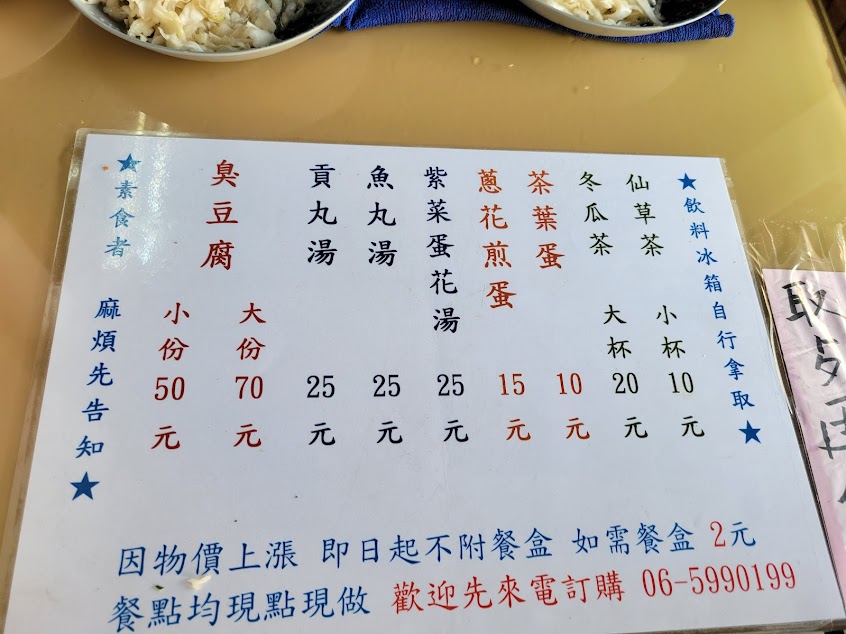 ★飲料冰箱自行拿取★
仙草茶
冬瓜茶
小杯10元
大杯20元
茶葉蛋
10元
蔥花煎蛋
15元
紫菜蛋花湯
25元
魚丸湯
25元
貢丸湯
25元
臭豆腐
大份70元
小份50元
★素食者 麻煩先告知★
因物價上漲 即日起不附餐盒 如需餐盒 2元
餐點均現點現做 歡迎先來電訂購 06-5990199
取